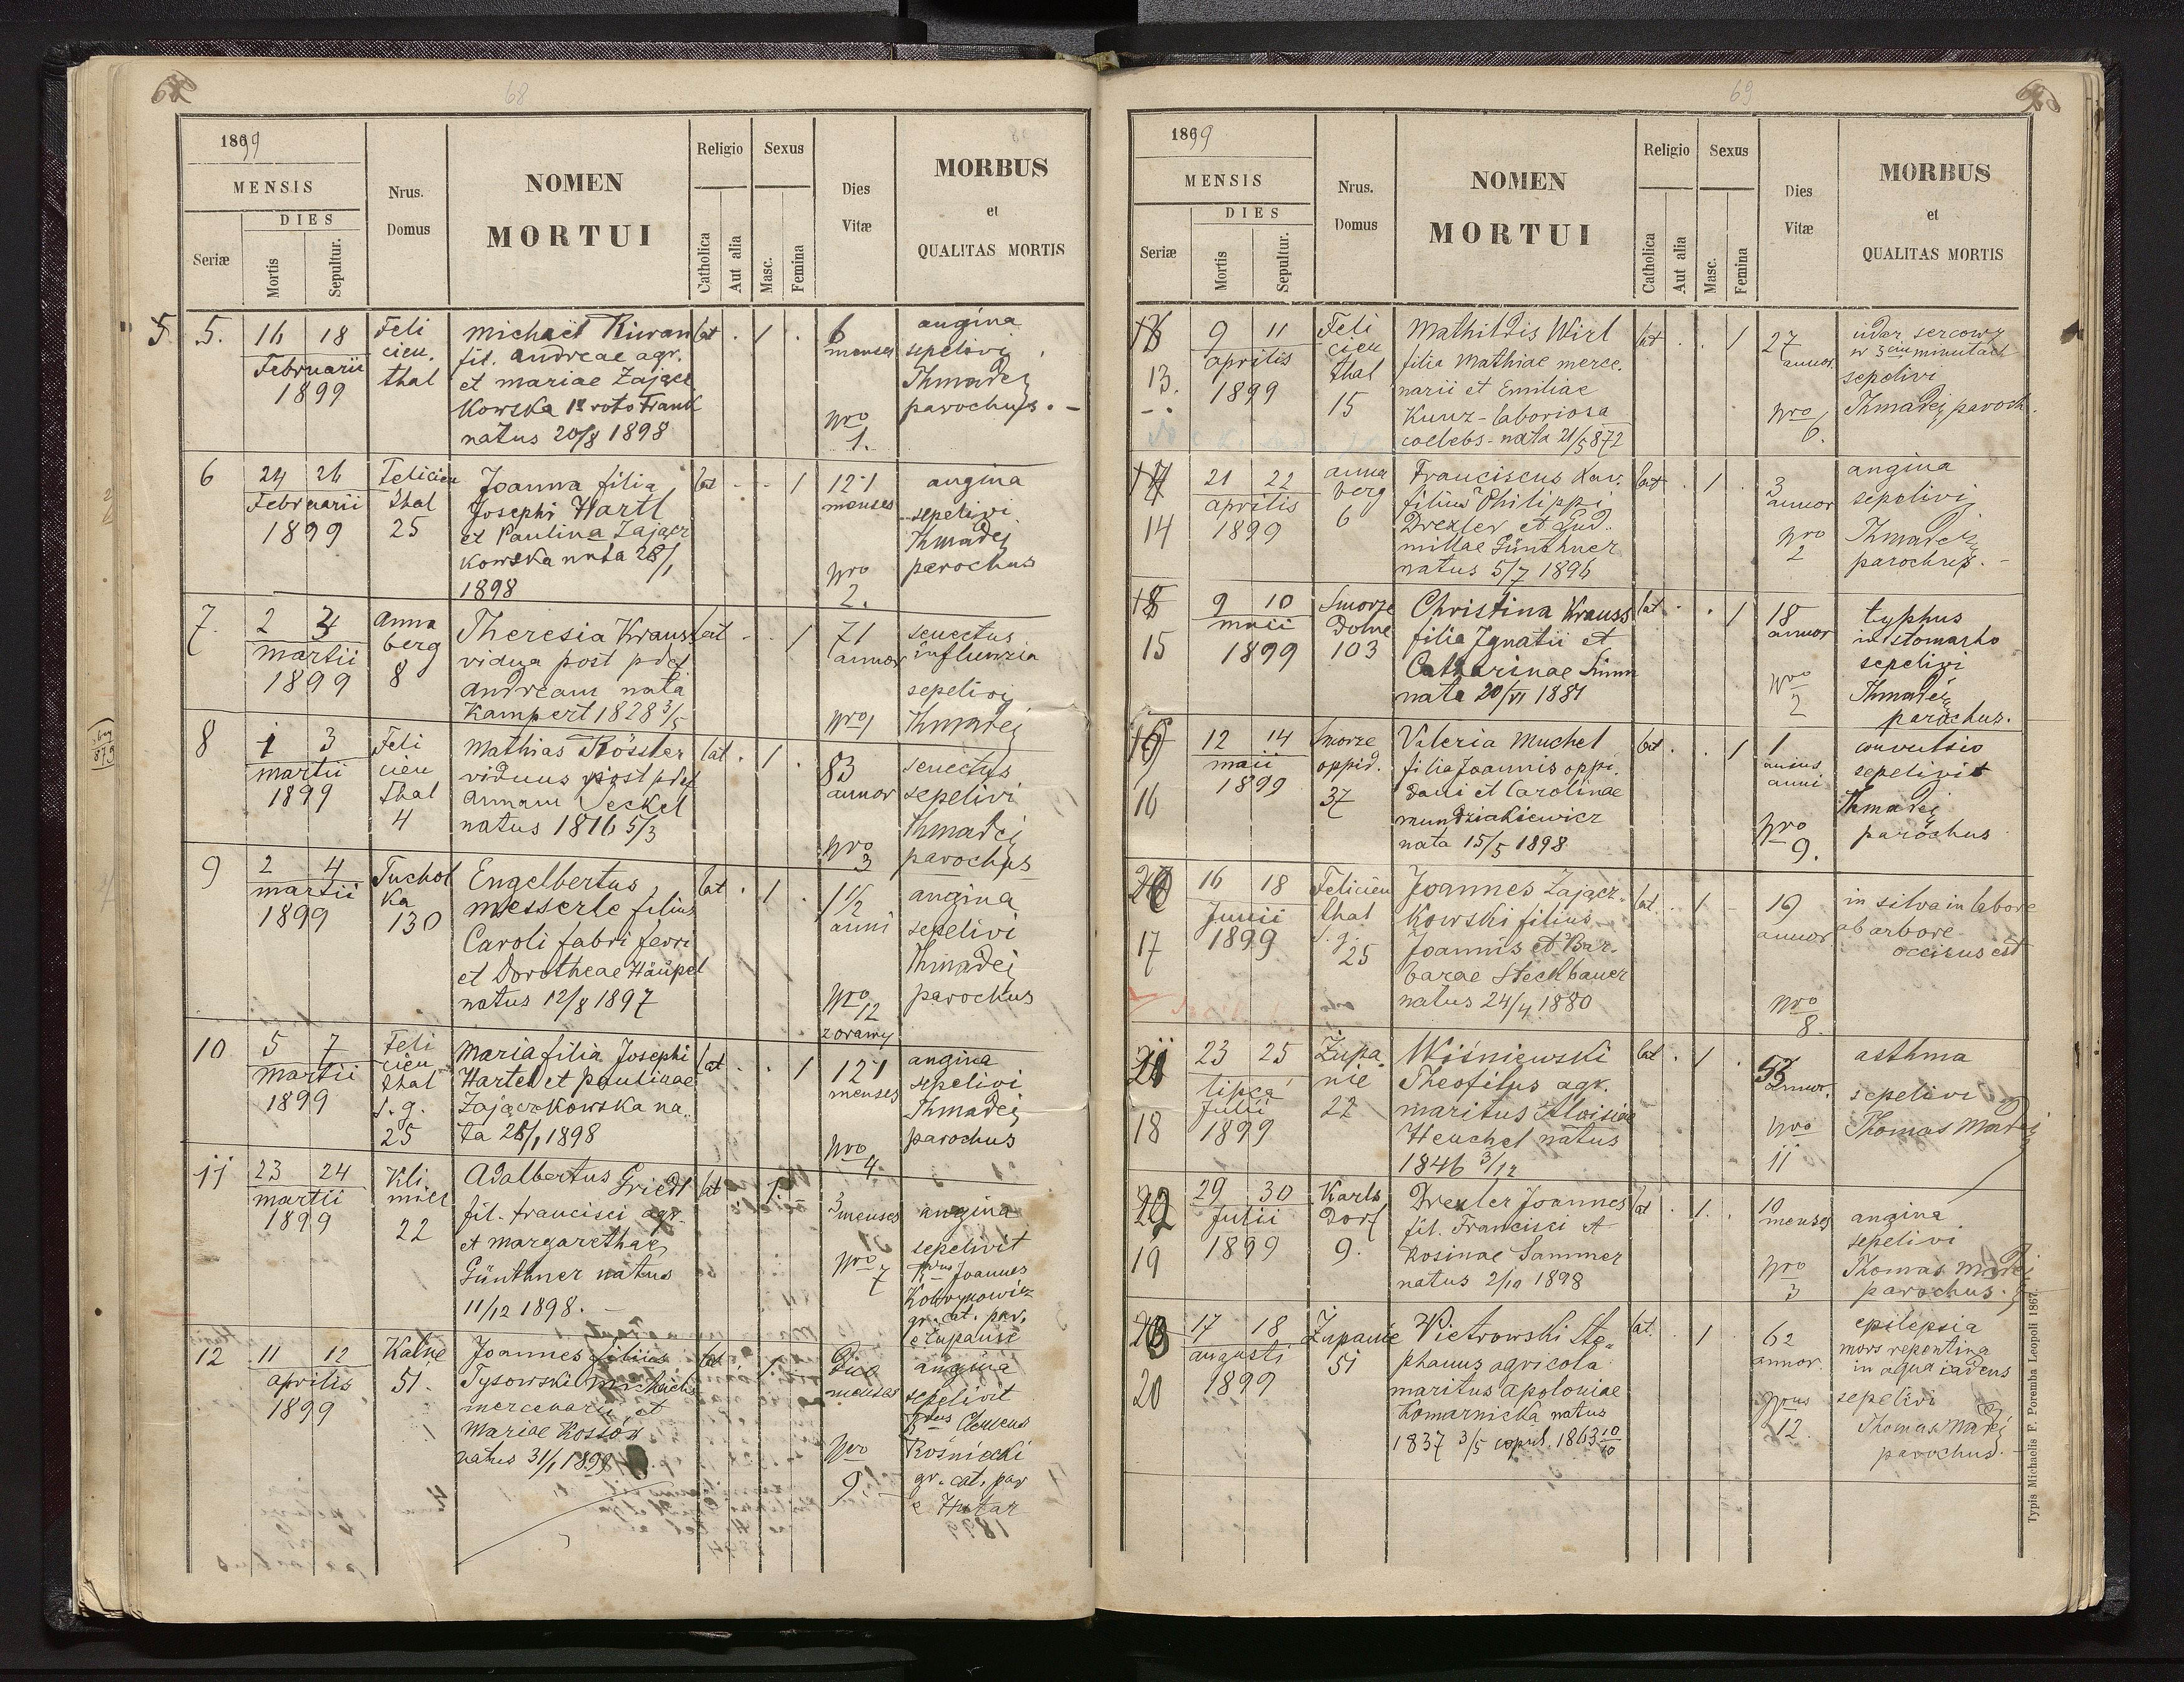 68
1899
MENSIS
DIES
Seriæ
Mortis
Sepultur.
Nrus.
Domus
NOMEN
MORTUI
Religio
Catholica
Aut alia
Sexus
Masc.
Femina
Dies
Vitæ
MORBUS
et
QUALITAS MORTIS
5 5. 16 18
Februarii
1899
Feli
cien.
thal
Michaël
fil. Andreae agr.
et Mariae Zającz
kowska 1º voto Frank
natus 20/8 1898
lat . 1 .
6
menses
Nro
1.
angina
sepelivi
Thmadej
parochus. -
6 24 26
Februarii
1899
Felicien
thal
25
Joanna filia
Josephi Hartl
et Paulina Zającz
kowska nata 28/1
1898
lat - - 1
12-1
menses
Nro
2.
angina
sepelivi
Thmadej
parochus
7. 2 3
martii
1899
Anna
berg
8
Theresia Krauss
vidua post pdef
Andream nata
Kampert 1828 3/5
lat - - 1
71
annor
Nro 1
senectus
influenzia
sepelivi
Thmadej
8 1 3
martii
1899
Feli
cien
thal
4
Mathias Rössler
viduus post pdef
Annam Seckel
natus 1816 5/3
lat . 1 .
83
annor
Nro
3
senectus
sepelivi
Thmadej
parochus
9 2 4
martii
1899
Tuchol
ka
130
Engelbertus
Messerle filius
Caroli fabri ferri
et Dorotheae Häüpel
natus 12/8 1897
lat . 1 .
1 1/2
anni
Nro
12
angina
sepelivi
Thmadej
parochus
10 5 7
Martii
1899
Feli
cien
thal
s. g.
25
Maria filia Josephi
Hartel et Paulinae
Zajączkowska na
ta 28/1 1898
lat . . 1
12-1
menses
Nro
4
angina
sepelivi
Thmadej
parochus
11 23 24
martii
1899
Kli
miec
22
Adalbertus Griedl
fil. Francisci agr.
et Margarethae
Günthner natus
11/12 1898. -
lat 1
3
menses
Nro
7
angina
sepelivit
Rdus Joannes
gr. cat. par.
e Zupanie
12 11 12
aprilis
1899
Kalne
51.
Joannes filius
Tysowski Michaelis
mercenarii et
Mariae Kossów
natus 31/1 1899
lat 1
menses
Nro
9. -
angina
sepelivit
Rdus Clemens
Rośniecki
gr. cat. par
e Hutar
69
1899
MENSIS
DIES
Seriæ
Mortis
Sepultur.
Nrus.
Domus
NOMEN
MORTUI
Religio
Catholica
Aut alia
Sexus
Masc.
Femina
Dies
Vitæ
MORBUS
et
QUALITAS MORTIS
13. 9 11
aprilis
1899
Feli
cien
thal
15
Mathildis Wirl
filia Mathiae merce.
narii et Emiliae
Kunz - laboriosa
coelebs - nata 21/5 872
lat . . 1
27
annor.
Nro
6.
udar sercowy
w 3 ciu minutach
sepelivi
Thmadej paroch.
14 21 22
aprilis
1899
Anna
berg
6
Franciscus Xav.
filius Philippi
Drexler et Lud.
millae Günthner
natus 5/7 1896
lat . 1 .
3
annor
Nro
2
angina
sepelivi
Thmadej
parochus. -
15 9 10
maii
1899
Smorze
Dolne
103
Christina Krauss
filia Ignatii et
Catharinae Simm
nata 20/VI 1881
lat . . 1
18
annor
Nro
2
typhus
in stomacho
sepelivi
Thmadej
parochus.
16 12 14
maii
1899
Smorze
oppid.
37
Valeria Muchel
filia Joannis oppi.
dani et Carolinae
Mundziakiewicz
nata 15/5 1898
lat . . 1
1
unius
anni
Nro
9.
convulsio
sepelivit
Thmadej
parochus
17 16 18
Junii
1899
Felicien
thal
s. g.
25
Joannes Zającz.
kowski filius
Joannis et Bar.
barae Steckbauer
natus 24/4 1880
lat . 1 -
19
annor
Nro
8.
in silva in labore
ab arbore
occisus est
18 23 25
lipca
Julii
1899
Zupa
nie
22
Wiśniewski
Theofilus agr.
maritus Aloisiae
Heuchel natus
1846 3/12
lat . 1 .
53
annor.
Nro
11
asthma
sepelivi
Thomas Madej
19 29 30
Julii
1899
Karls
dorf
9.
Drexler Joannes
fil. Francisci et
Rosinae Sammer
natus 2/10 1898
lat . 1. .
10
menses
Nro
3
angina
sepelivi
Thomas Madej
parochus.
20 17 18
augusti
1899
Zupanie
51
Pietrowski Ste
phanus agricola
maritus Apoloniae
Komarnicka natus
1837 3/5 copul. 1863 10/10
lat. 1
62
annor.
Nrus
12.
epilepsia
mors repentina
in aqua cadens
sepelivi
Thomas Madej
parochus. -
Typis Michaelis F. Poremba Leopoli 1867.